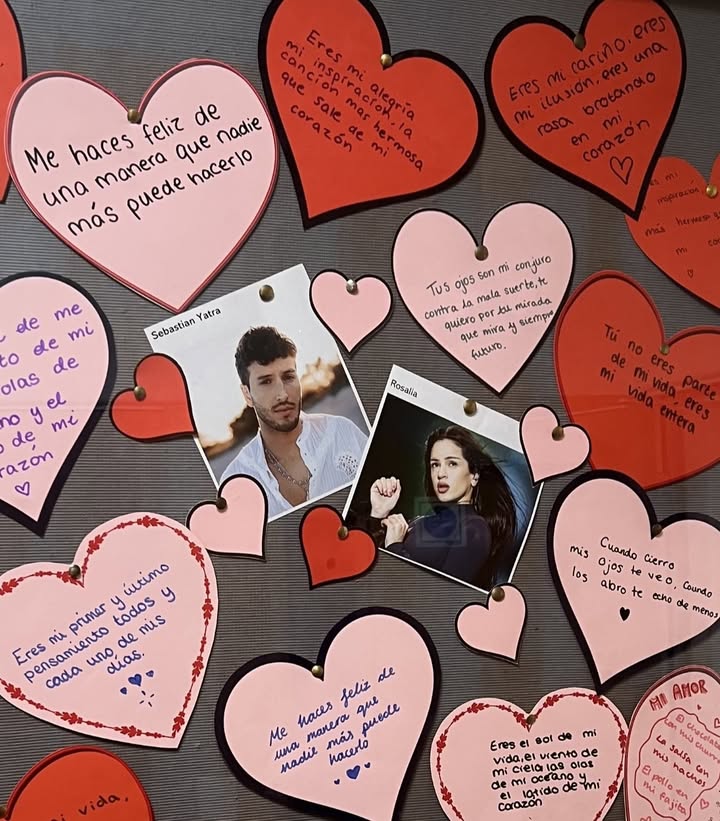 Eres mi alegría
mi inspiración, la
canción mas hermosa
que sale de mi
corazón
Eres mi cariño, eres
mi ilusión, eres una
rosa brotando
en mi
corazón
Me haces feliz de
una manera que nadie
más puede hacerlo
mi
inspiración
más hermosa
mi
Tus ojos son mi conjuro
contra la mala suerte, te
quiero por tu mirada
que mira y siempre
futuro.
Sebastian Yatra
Rosalia
de me
to de mi
olas de
no y el
o de mi
razón
Tú no eres parte
de mi vida, eres
mi vida entera
Cuando cierro
mis ojos te veo, cuando
los abro te echo de menos
Eres mi primer y último
pensamiento todos y
cada uno de mis
días.
Me haces feliz de
una manera que
nadie más puede
hacerlo
Eres el sol de mi
vida, el viento de
mi cielo, las olas
de mi oceano y
el latido de mi
corazón
MI AMOR
El chocolate
con mis churros
La salsa en
mis nachos
El pollo en
mi fajita
mi vida,